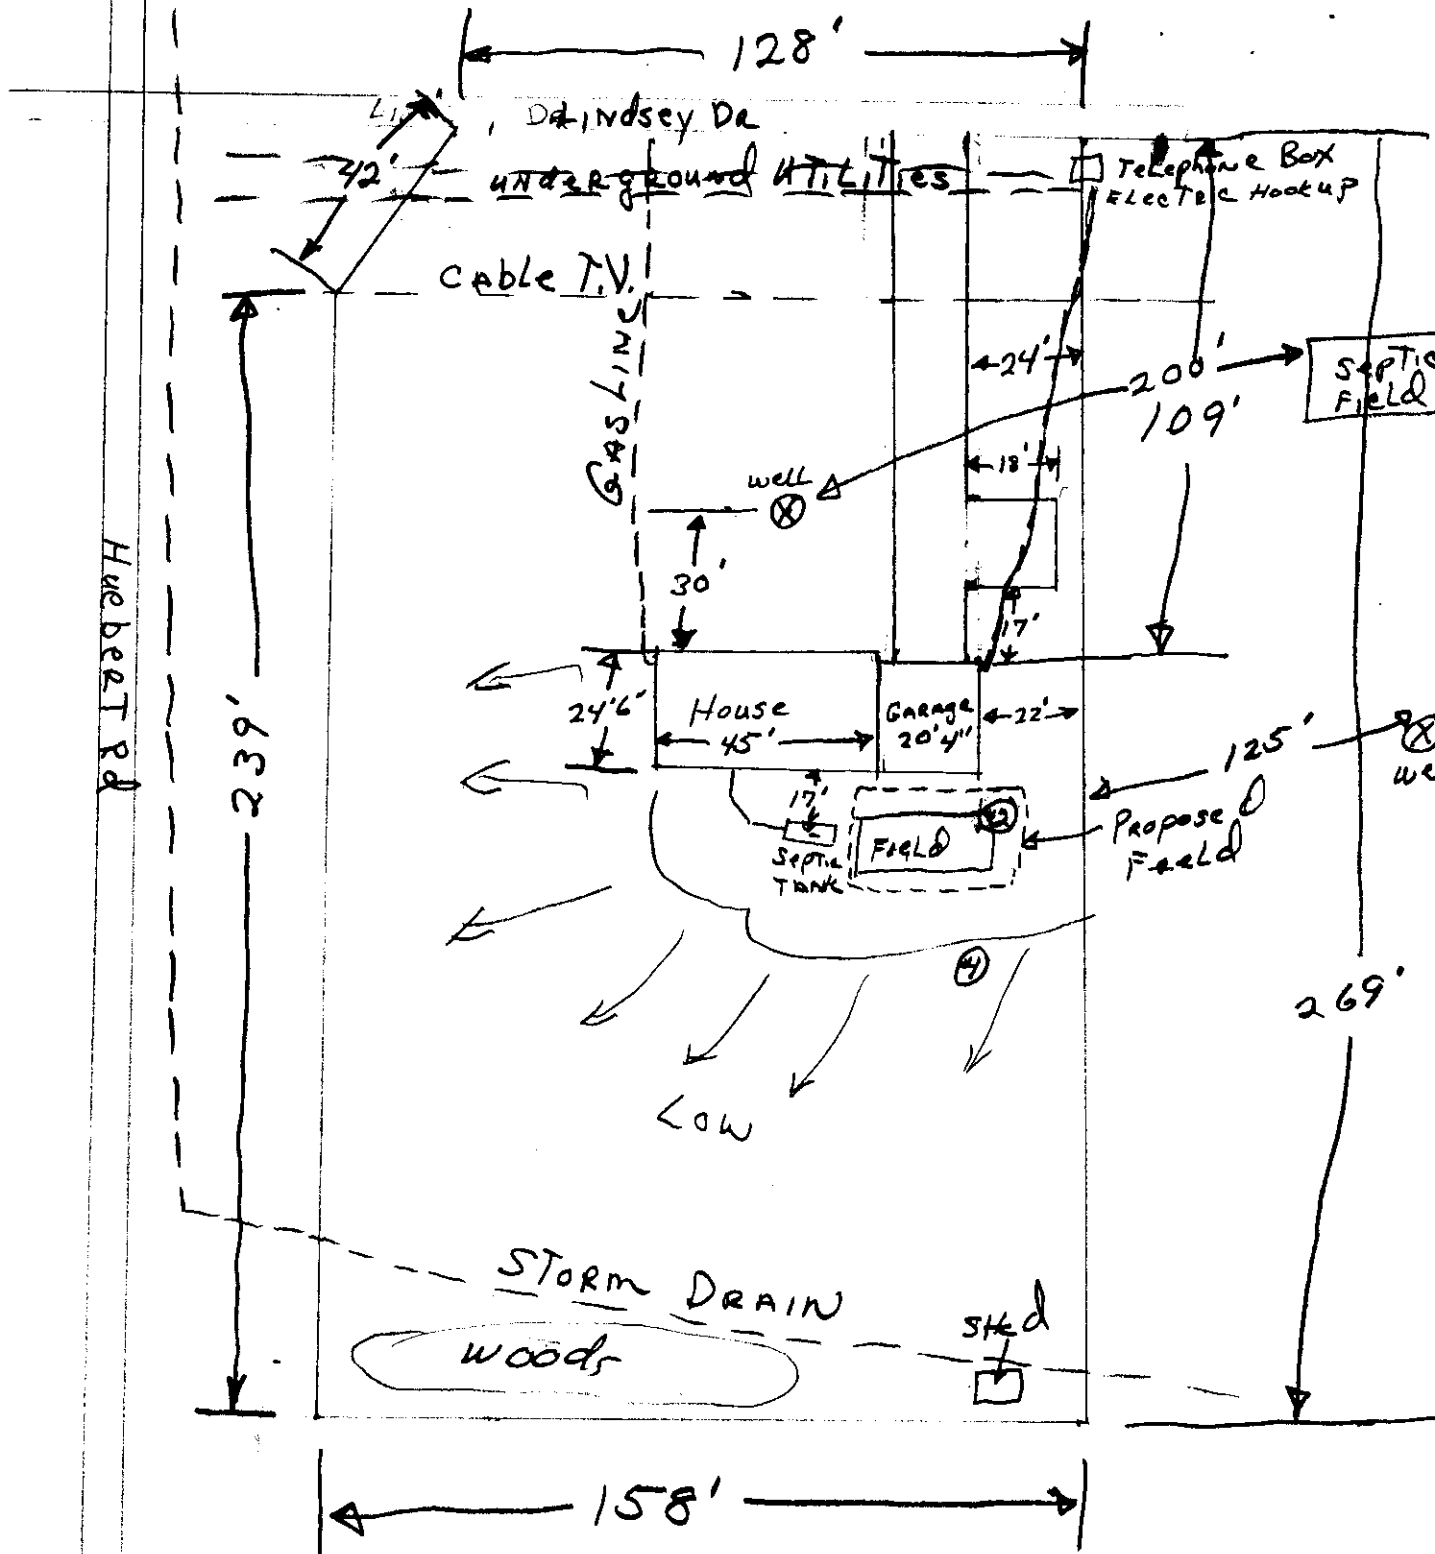 128'
Lindsey Dr
42'
underground UTiLiTies
Telephone Box
Electric Hookup
Cable T.V.
GAS LINE
24'
200'
109'
Septic
Field
18'
well
30'
17'
HueberT Rd
239'
24'6"
House
45'
GARAGE
20'4"
22'
125'
we
17'
Septic
TANK
Field
#2
Proposed
Field
#4
269'
Low
STORM DRAIN
woods
SHed
158'